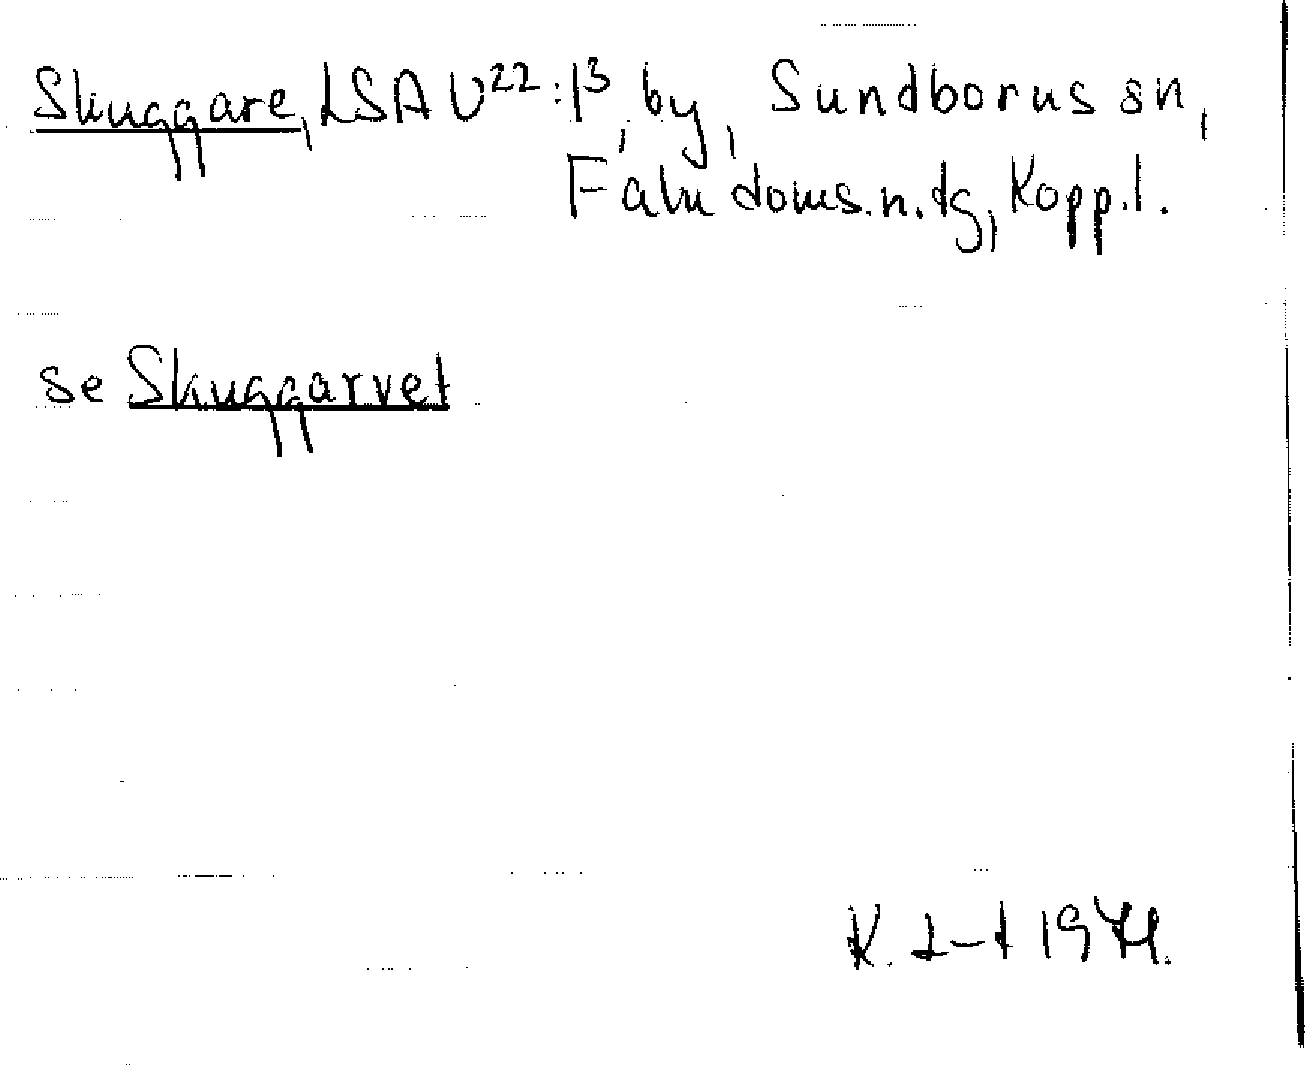 Skuggare, LSA U²²:1³, by, Sundborns sn,
Falu doms.n. tg, Kopp.l.
se Skuggarvet
K. L-t 1971.